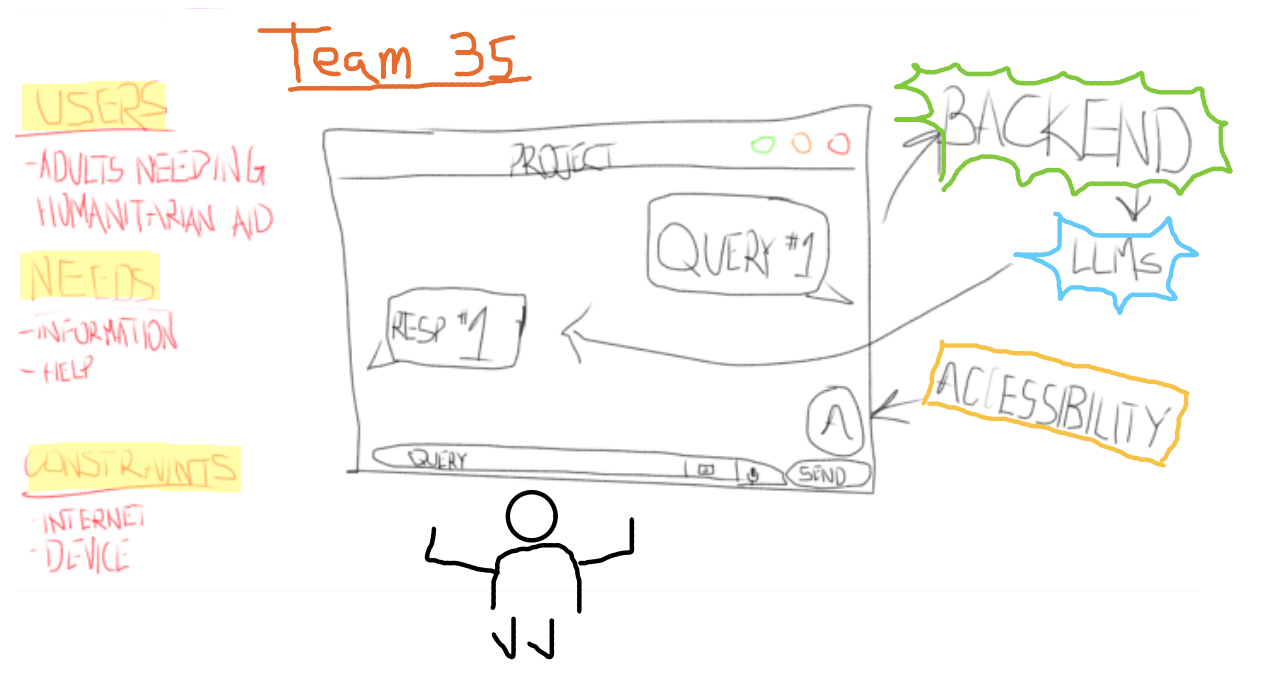 Team 35
USERS
-ADULTS NEEDING
HUMANITARIAN AID
NEEDS
-INFORMATION
-HELP
CONSTRAINTS
-INTERNET
-DEVICE
PROJECT
QUERY #1
RESP #1
A
QUERY
SEND
BACKEND
LLMs
ACCESSIBILITY